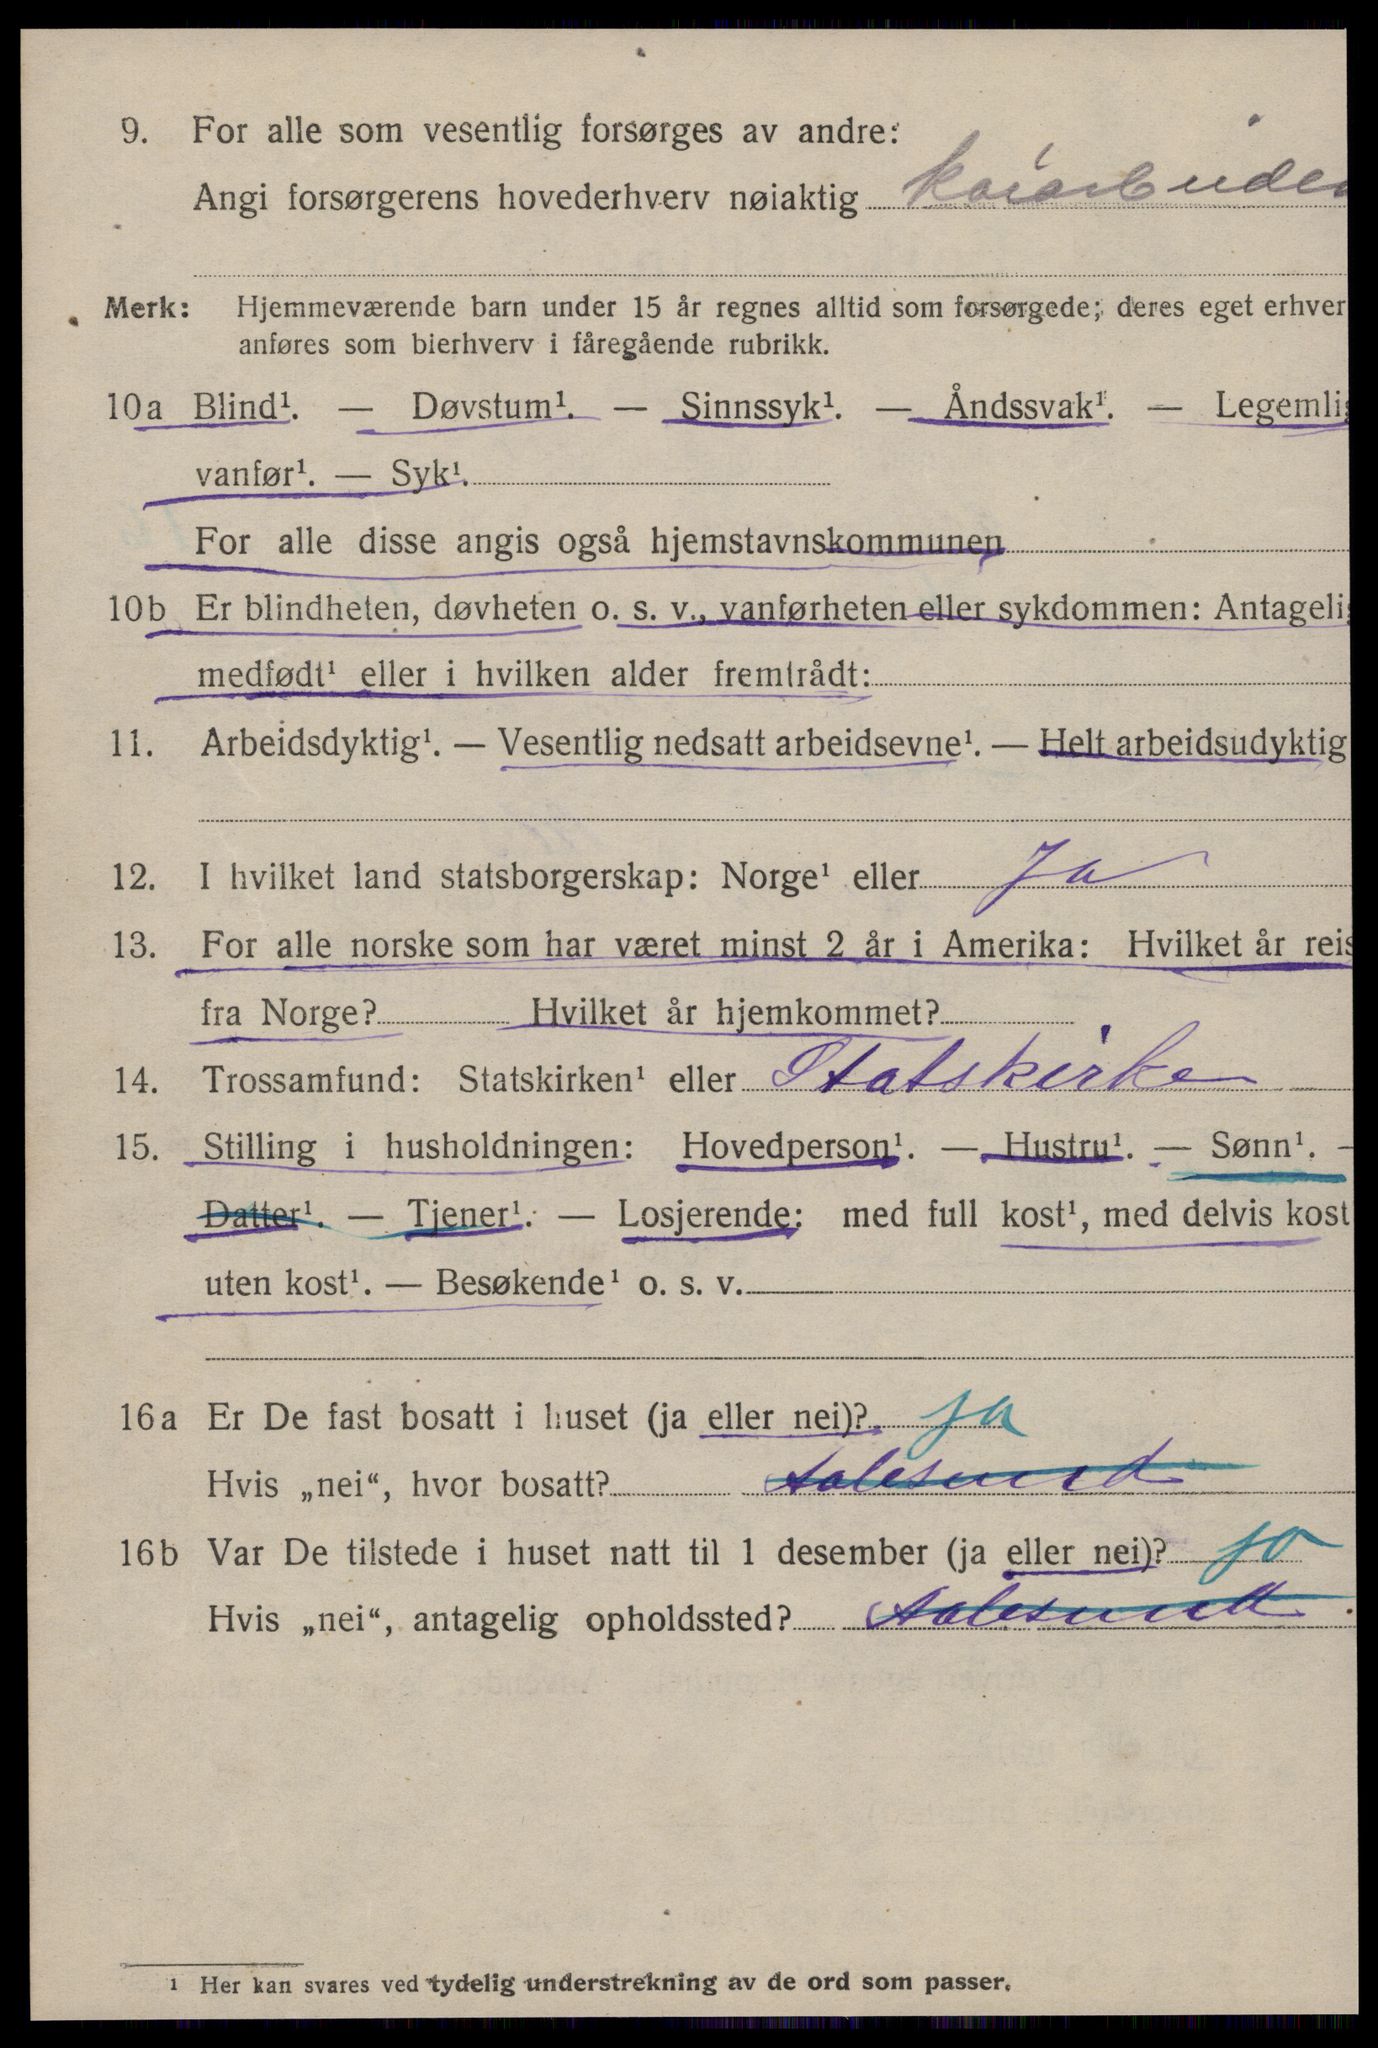 9. For alle som vesentlig forsørges av andre:
Angi forsørgerens hovederhverv nøiaktig kaiarbeider
Merk: Hjemmeværende barn under 15 år regnes alltid som forsørgede; deres eget erhver
anføres som bierhverv i fåregående rubrikk.
10a Blind¹. — Døvstum¹. — Sinnssyk¹. — Åndssvak¹. — Legemlig
vanfør¹. — Syk¹.
For alle disse angis også hjemstavnskommunen
10b Er blindheten, døvheten o. s. v., vanførheten eller sykdommen: Antagelig
medfødt¹ eller i hvilken alder fremtrådt:
11. Arbeidsdyktig¹. — Vesentlig nedsatt arbeidsevne¹. — Helt arbeidsudyktig
12. I hvilket land statsborgerskap: Norge¹ eller Ja
13. For alle norske som har været minst 2 år i Amerika: Hvilket år reis
fra Norge? Hvilket år hjemkommet?
14. Trossamfund: Statskirken¹ eller Statskirke
15. Stilling i husholdningen: Hovedperson¹. — Hustru¹. — Sønn¹. —
Datter¹. — Tjener¹. — Losjerende: med full kost¹, med delvis kost
uten kost¹. — Besøkende¹ o. s. v.
16a Er De fast bosatt i huset (ja eller nei)? ja
Hvis „nei“, hvor bosatt? Aalesund
16b Var De tilstede i huset natt til 1 desember (ja eller nei)? ja
Hvis „nei“, antagelig opholdssted? Aalesund
¹ Her kan svares ved tydelig understrekning av de ord som passer.